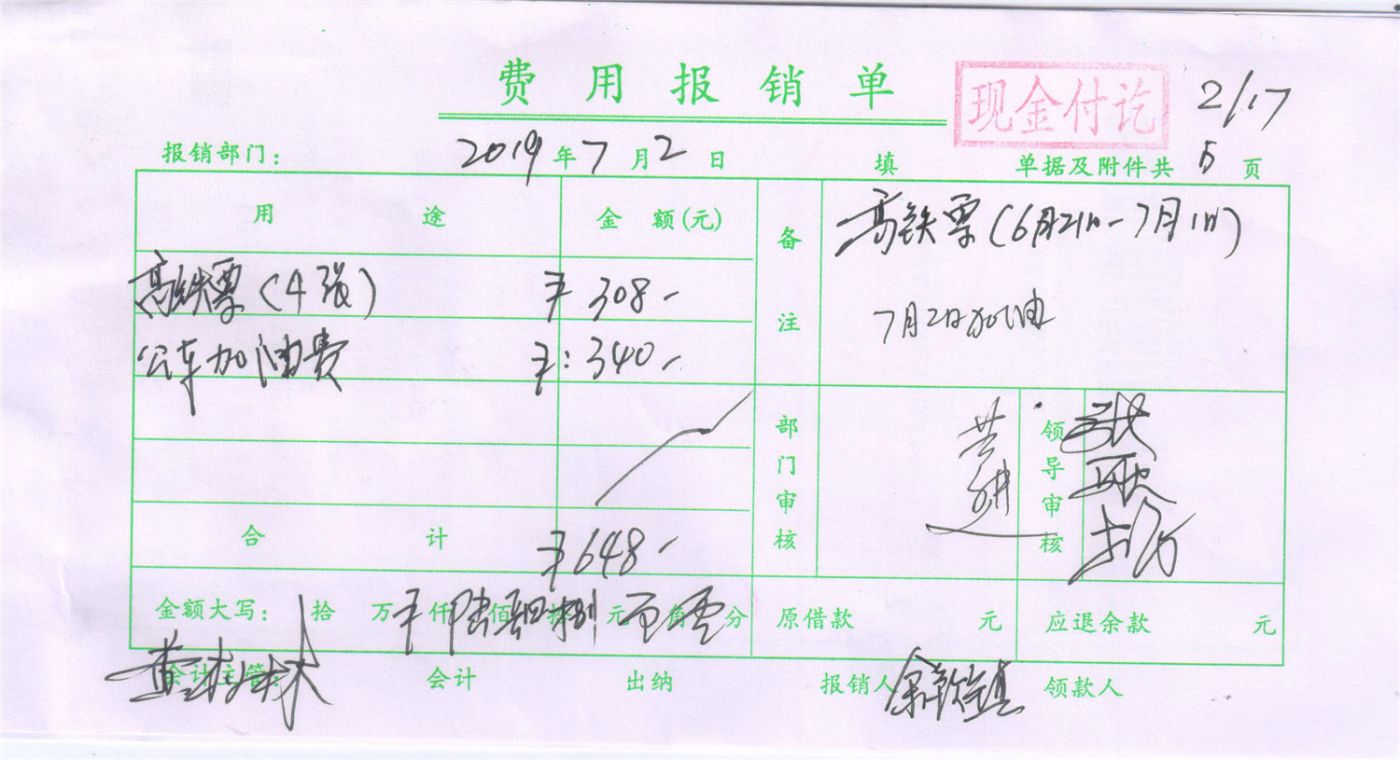 费用报销单
现金付讫
2/17
报销部门: 2019年7月2日 填 单据及附件共5页
用途 金额(元) 备注
高铁票(6月21日-7月1日)
高铁票(4张) ¥308-
7月2日加油
公车加油费 ¥:340-
部门审核 领导审核
合计 ¥648-
金额大写: 拾万¥仟陆佰肆拾捌元零角零分 原借款 元 应退余款 元
会计主管: 会计 出纳 报销人 领款人